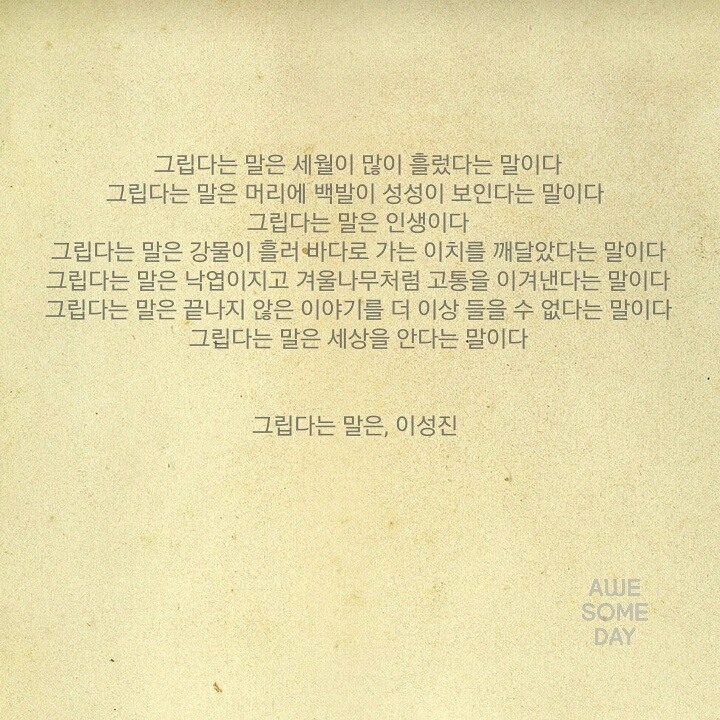 그립다는 말은 세월이 많이 흘렀다는 말이다
그립다는 말은 머리에 백발이 성성이 보인다는 말이다
그립다는 말은 인생이다
그립다는 말은 강물이 흘러 바다로 가는 이치를 깨달았다는 말이다
그립다는 말은 낙엽이지고 겨울나무처럼 고통을 이겨낸다는 말이다
그립다는 말은 끝나지 않은 이야기를 더 이상 들을 수 없다는 말이다
그립다는 말은 세상을 안다는 말이다
그립다는 말은, 이성진
AWE
SOME
DAY